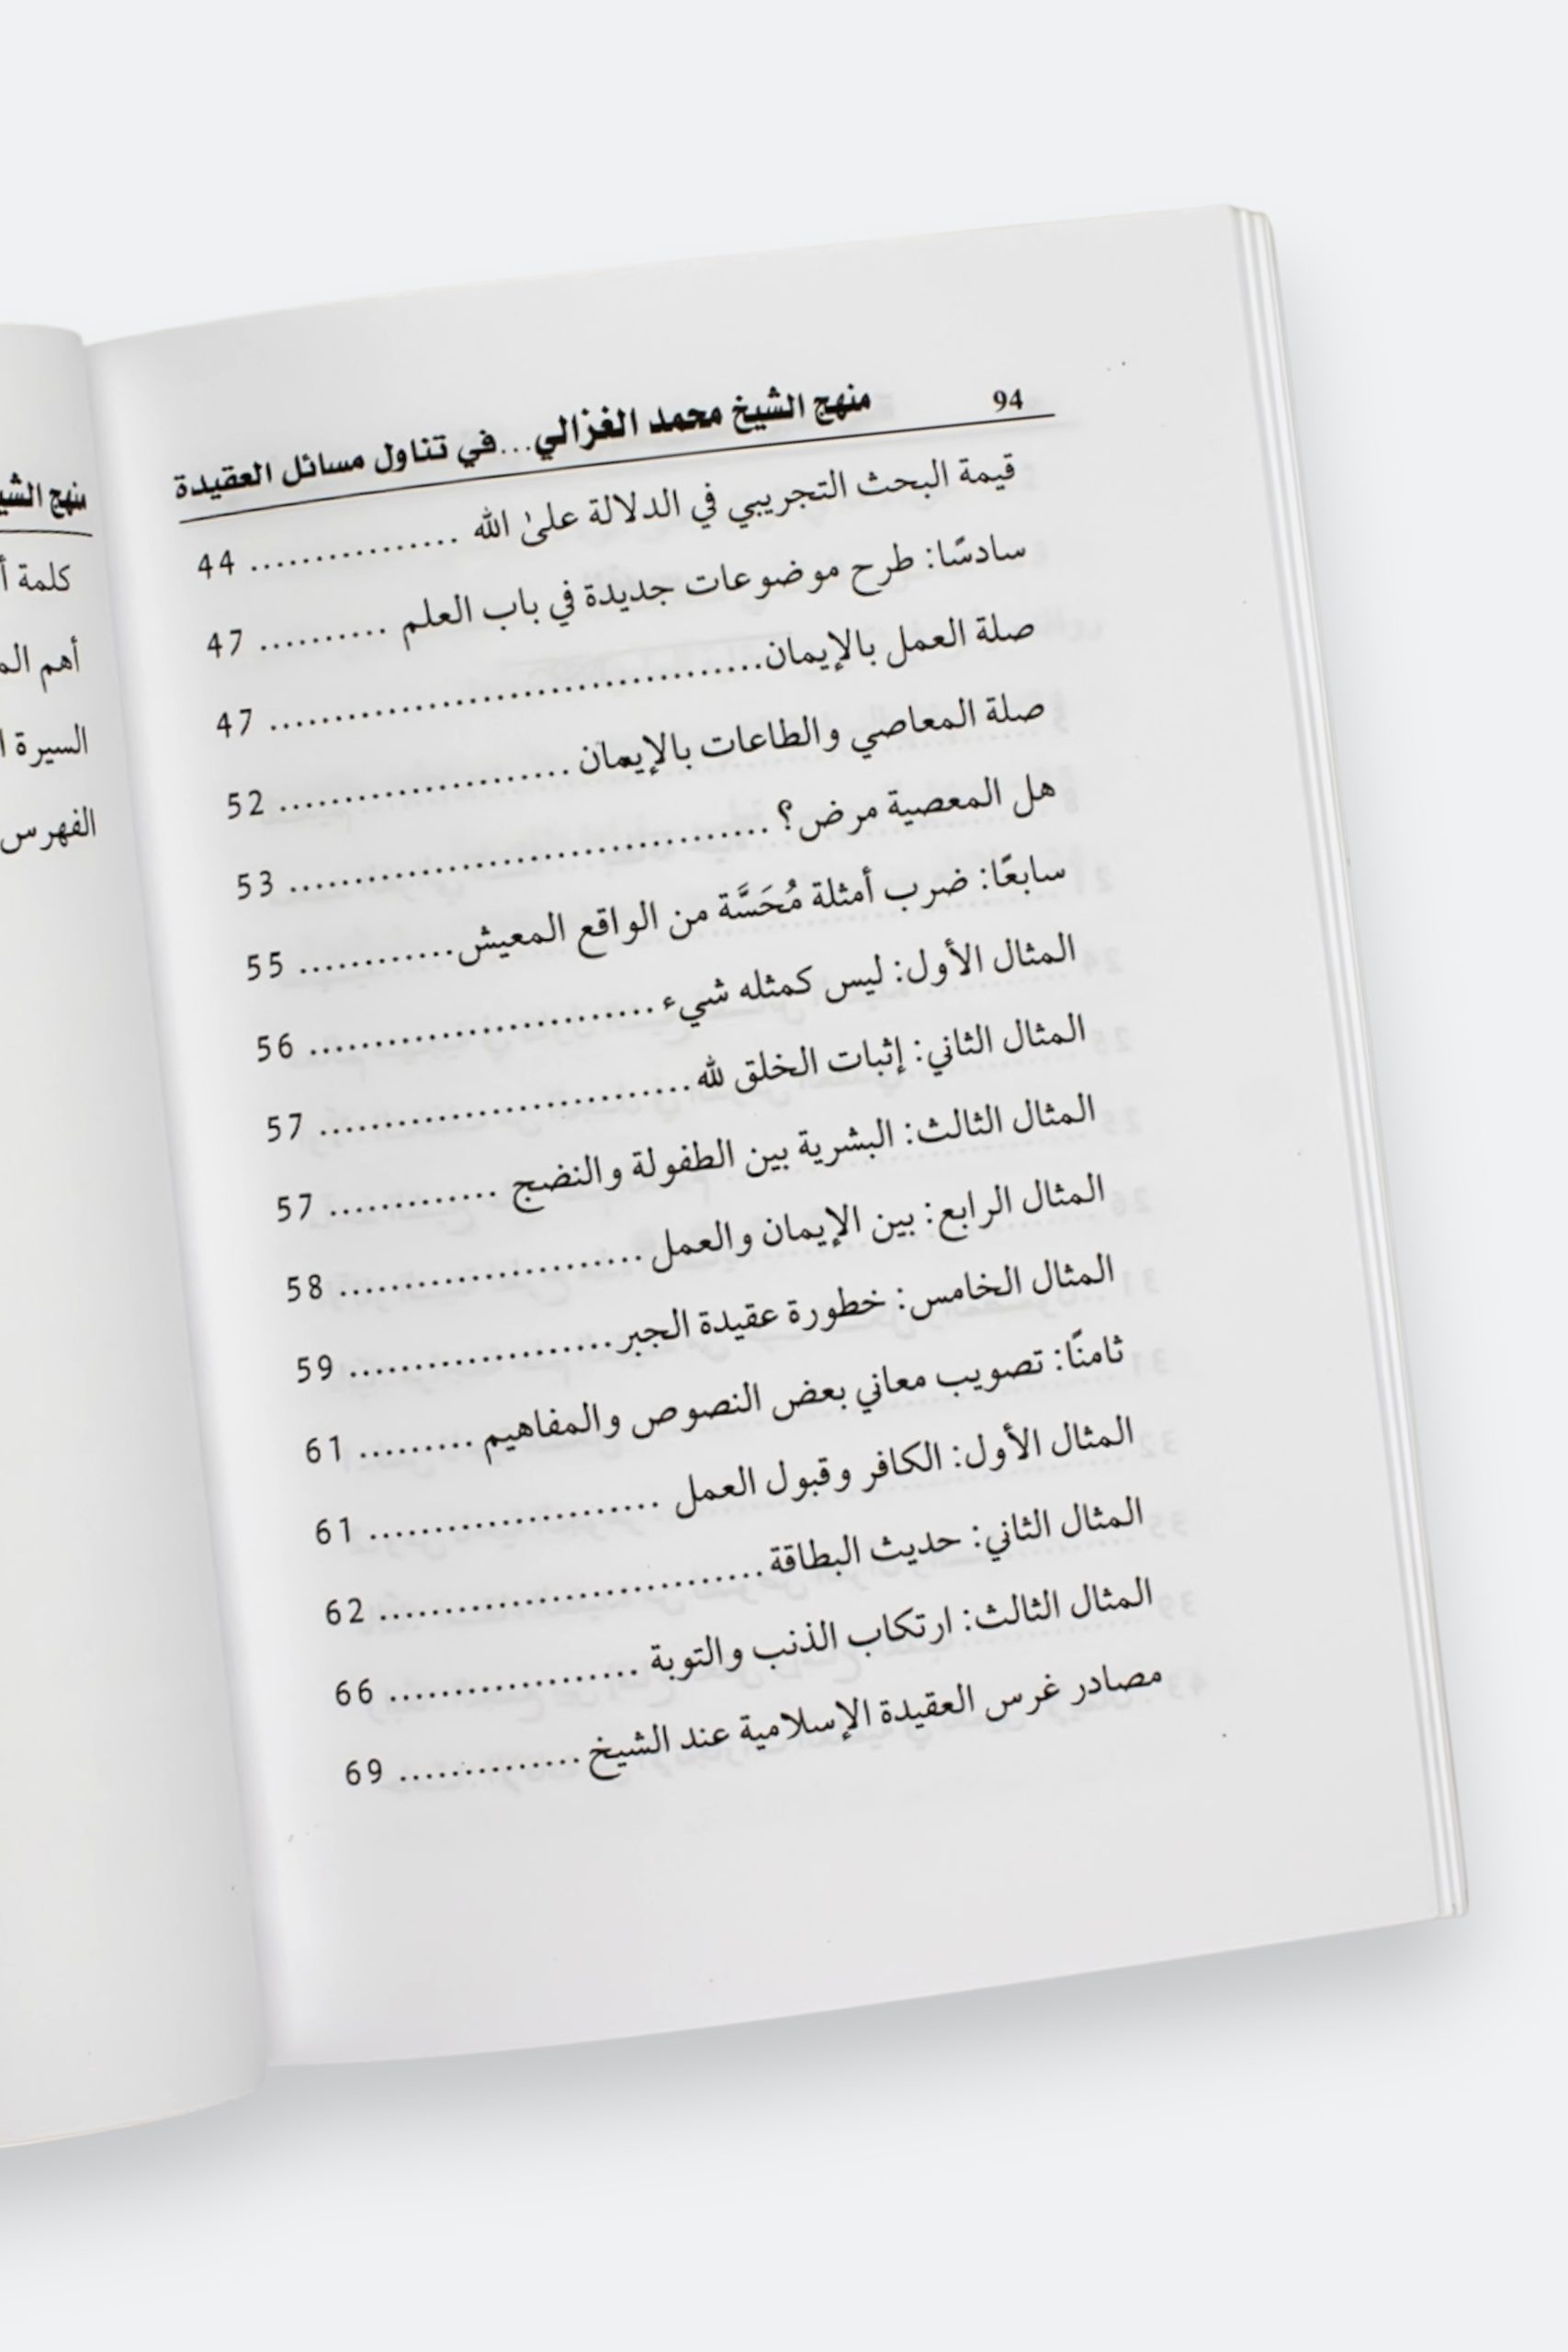 94 منهج الشيخ محمد الغزالي...في تناول مسائل العقيدة
قيمة البحث التجريبي في الدلالة علىٰ الله ................ 44
سادسًا: طرح موضوعات جديدة في باب العلم .......... 47
صلة العمل بالإيمان...................................... 47
صلة المعاصي والطاعات بالإيمان ....................... 52
هل المعصية مرض؟ ..................................... 53
سابعًا: ضرب أمثلة مُحَسَّة من الواقع المعيش............ 55
المثال الأول: ليس كمثله شيء........................... 56
المثال الثاني: إثبات الخلق لله............................. 57
المثال الثالث: البشرية بين الطفولة والنضج ............. 57
المثال الرابع: بين الإيمان والعمل........................ 58
المثال الخامس: خطورة عقيدة الجبر..................... 59
ثامنًا: تصويب معاني بعض النصوص والمفاهيم ......... 61
المثال الأول: الكافر وقبول العمل ....................... 61
المثال الثاني: حديث البطاقة.............................. 62
المثال الثالث: ارتكاب الذنب والتوبة .................... 66
مصادر غرس العقيدة الإسلامية عند الشيخ .............. 69
منهج
كلمة
أهم
السيرة
الفهرس